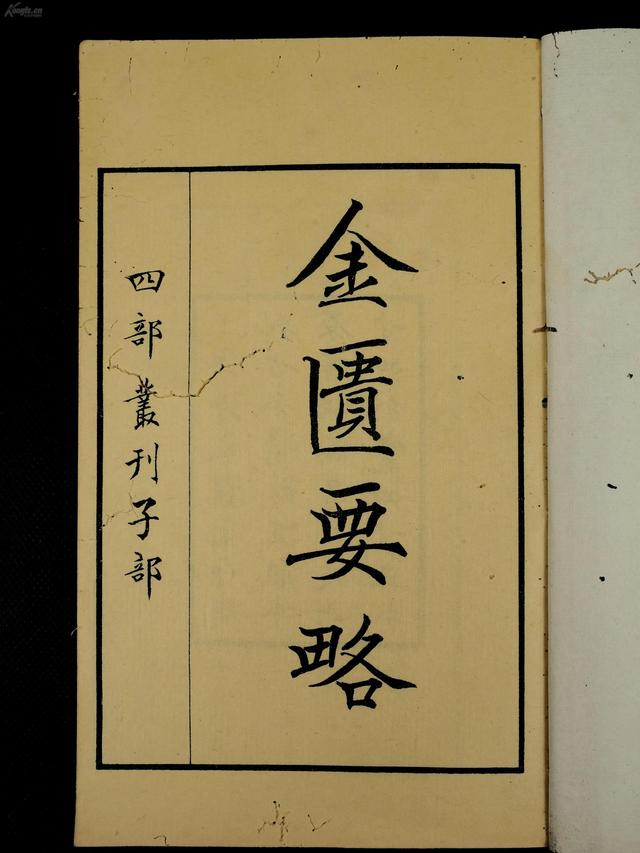 金匱要略
四部叢刊子部
Kongfz.cn